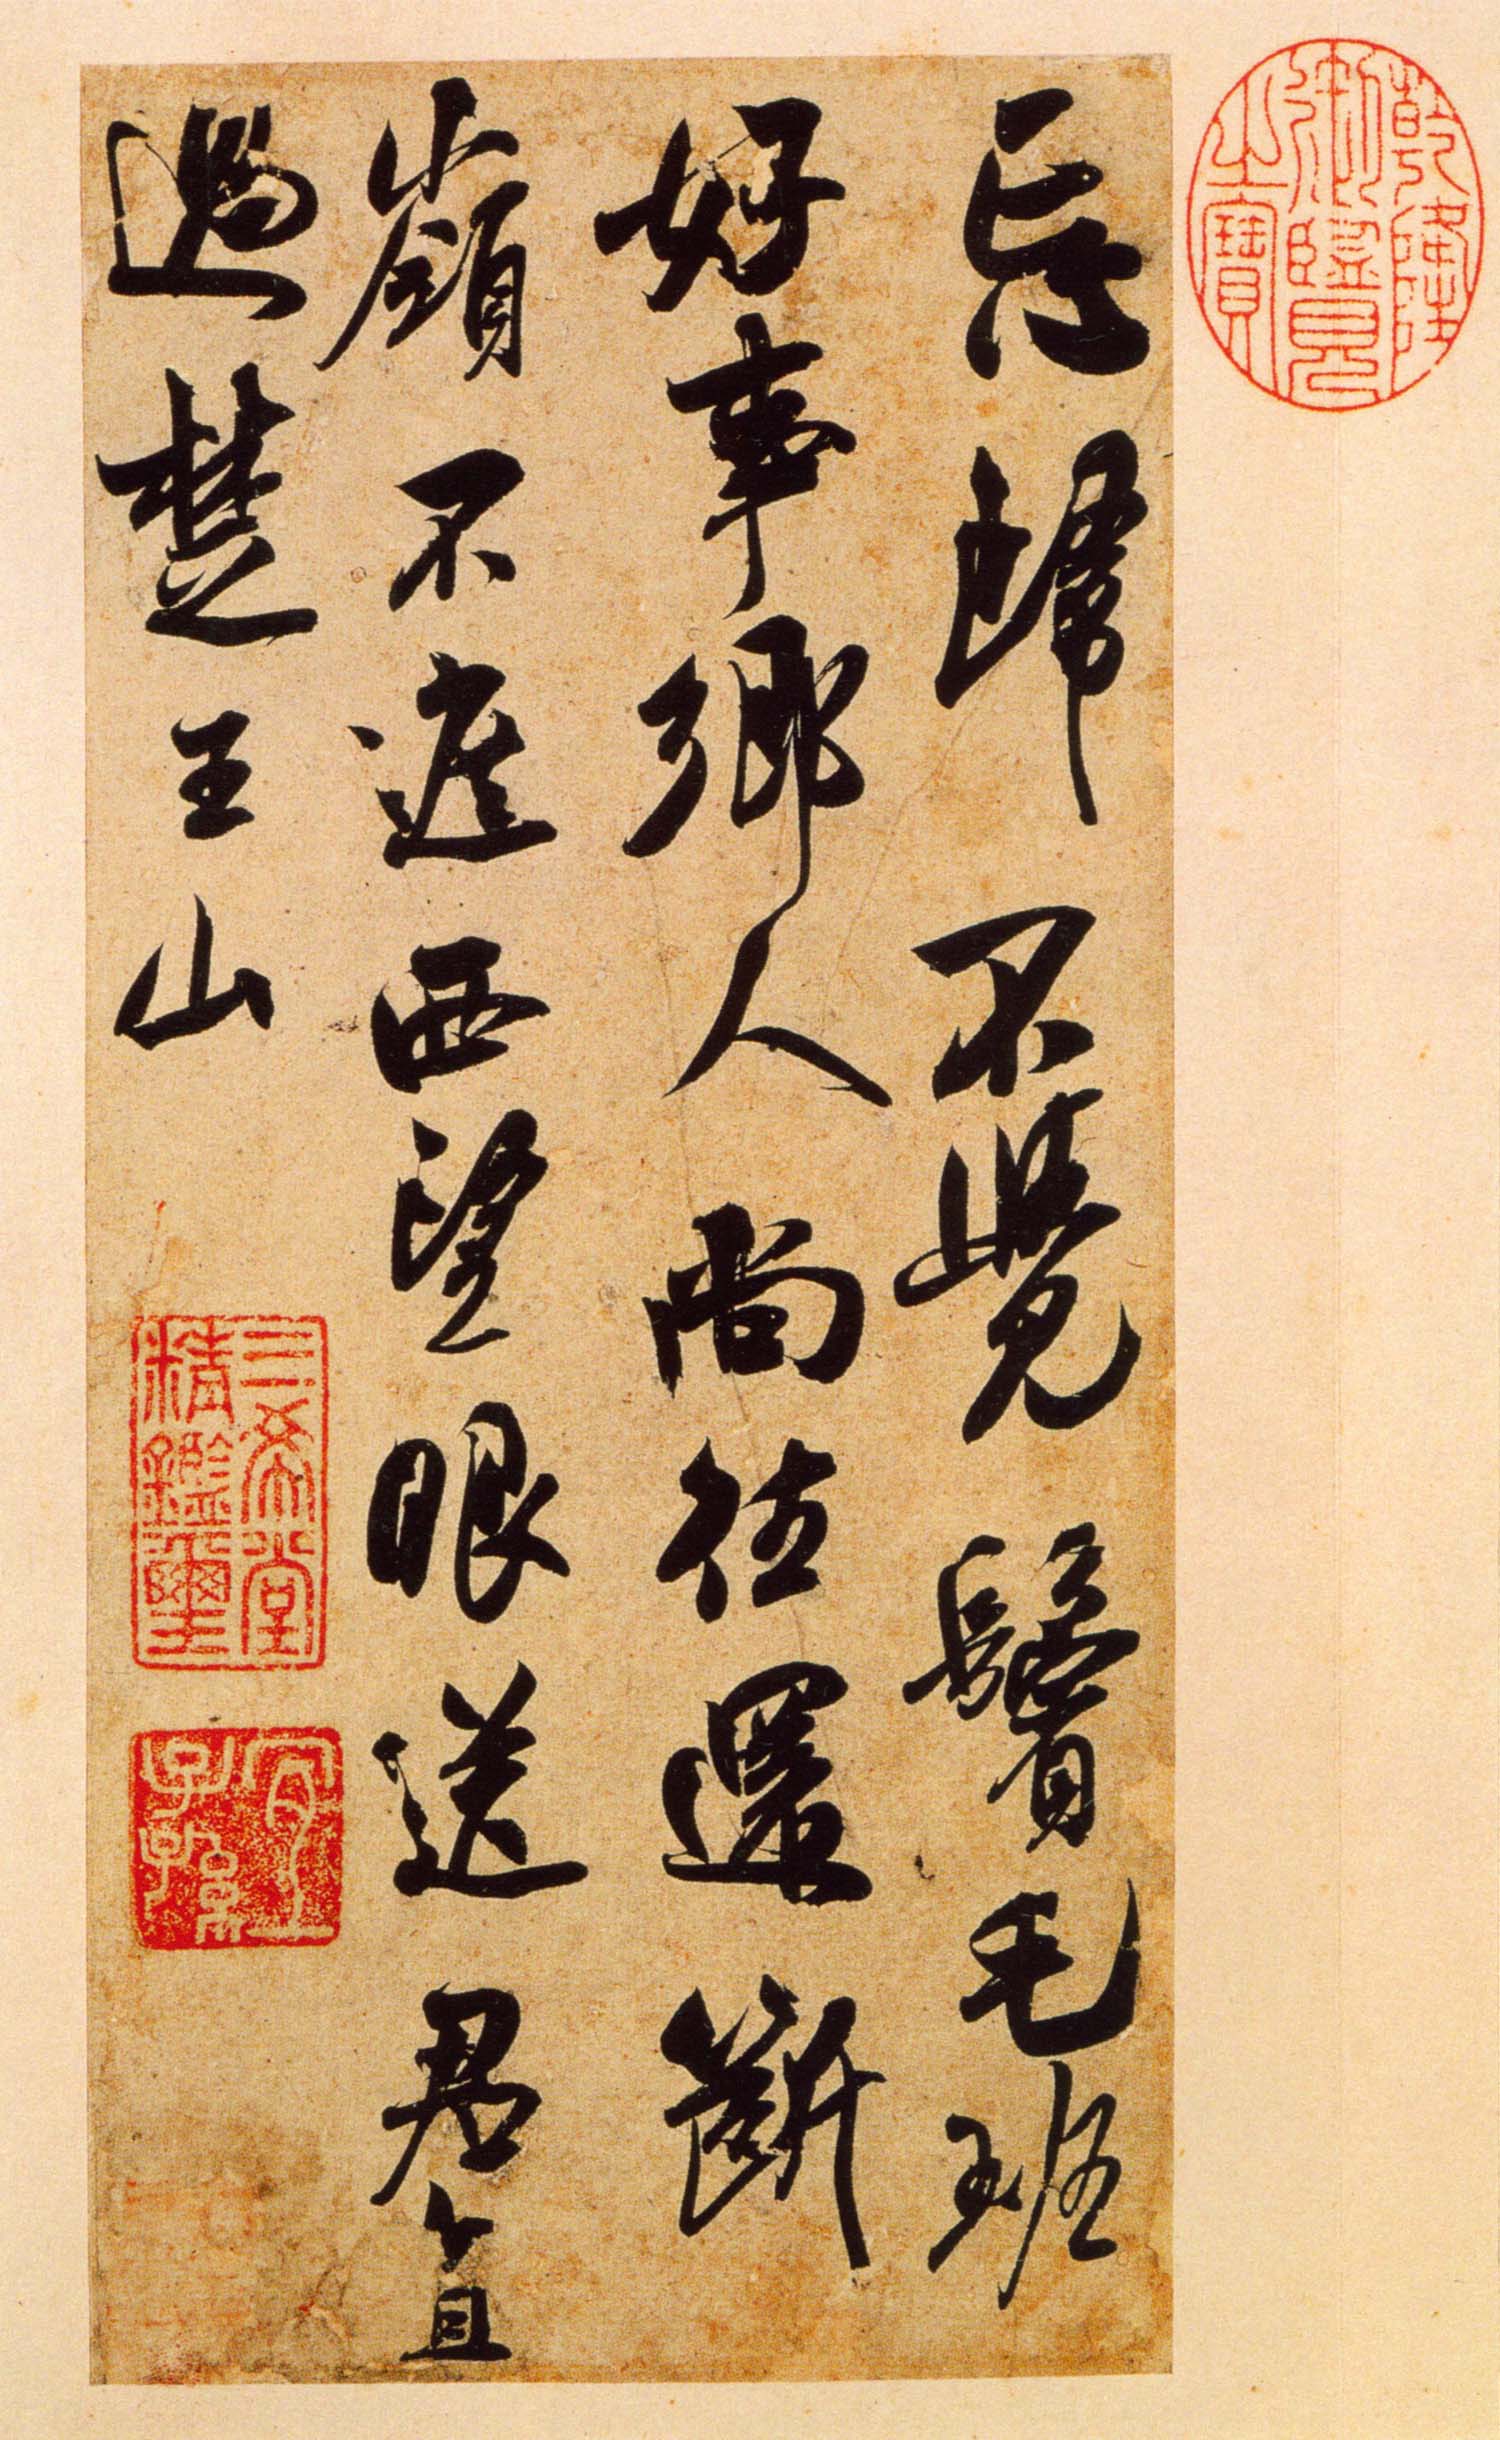 忘歸不覺鬢毛班
好事鄉人尚往還
斷嶺不遮西望眼
送君直
過楚王山
乾隆
御覽
之寶
三希堂
精鑑璽
宜
子孫